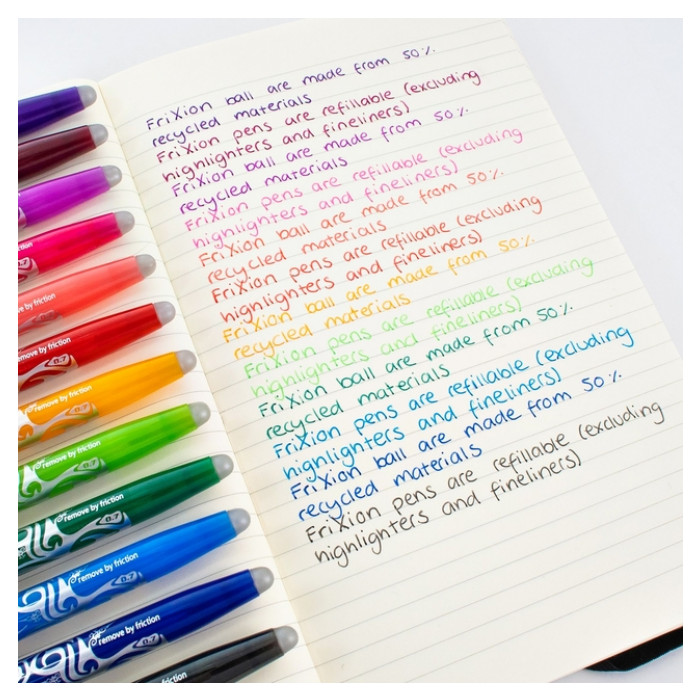 FriXion ball are made from 50%
recycled materials
FriXion pens are refillable (excluding
highlighters and fineliners)
FriXion ball are made from 50%
recycled materials
FriXion pens are refillable (excluding
highlighters and fineliners)
FriXion ball are made from 50%
recycled materials
FriXion pens are refillable (excluding
highlighters and fineliners)
FriXion ball are made from 50%
recycled materials
FriXion pens are refillable (excluding
highlighters and fineliners)
FriXion ball are made from 50%
recycled materials
FriXion pens are refillable (excluding
highlighters and fineliners)
FriXion ball are made from 50%
recycled materials
FriXion pens are refillable (excluding
highlighters and fineliners)
friction
by friction
remove by friction
0.7
remove by friction
remove by friction
0.7
remove by friction
0.7
remove by friction
0.7
remove by friction
0.7
friction